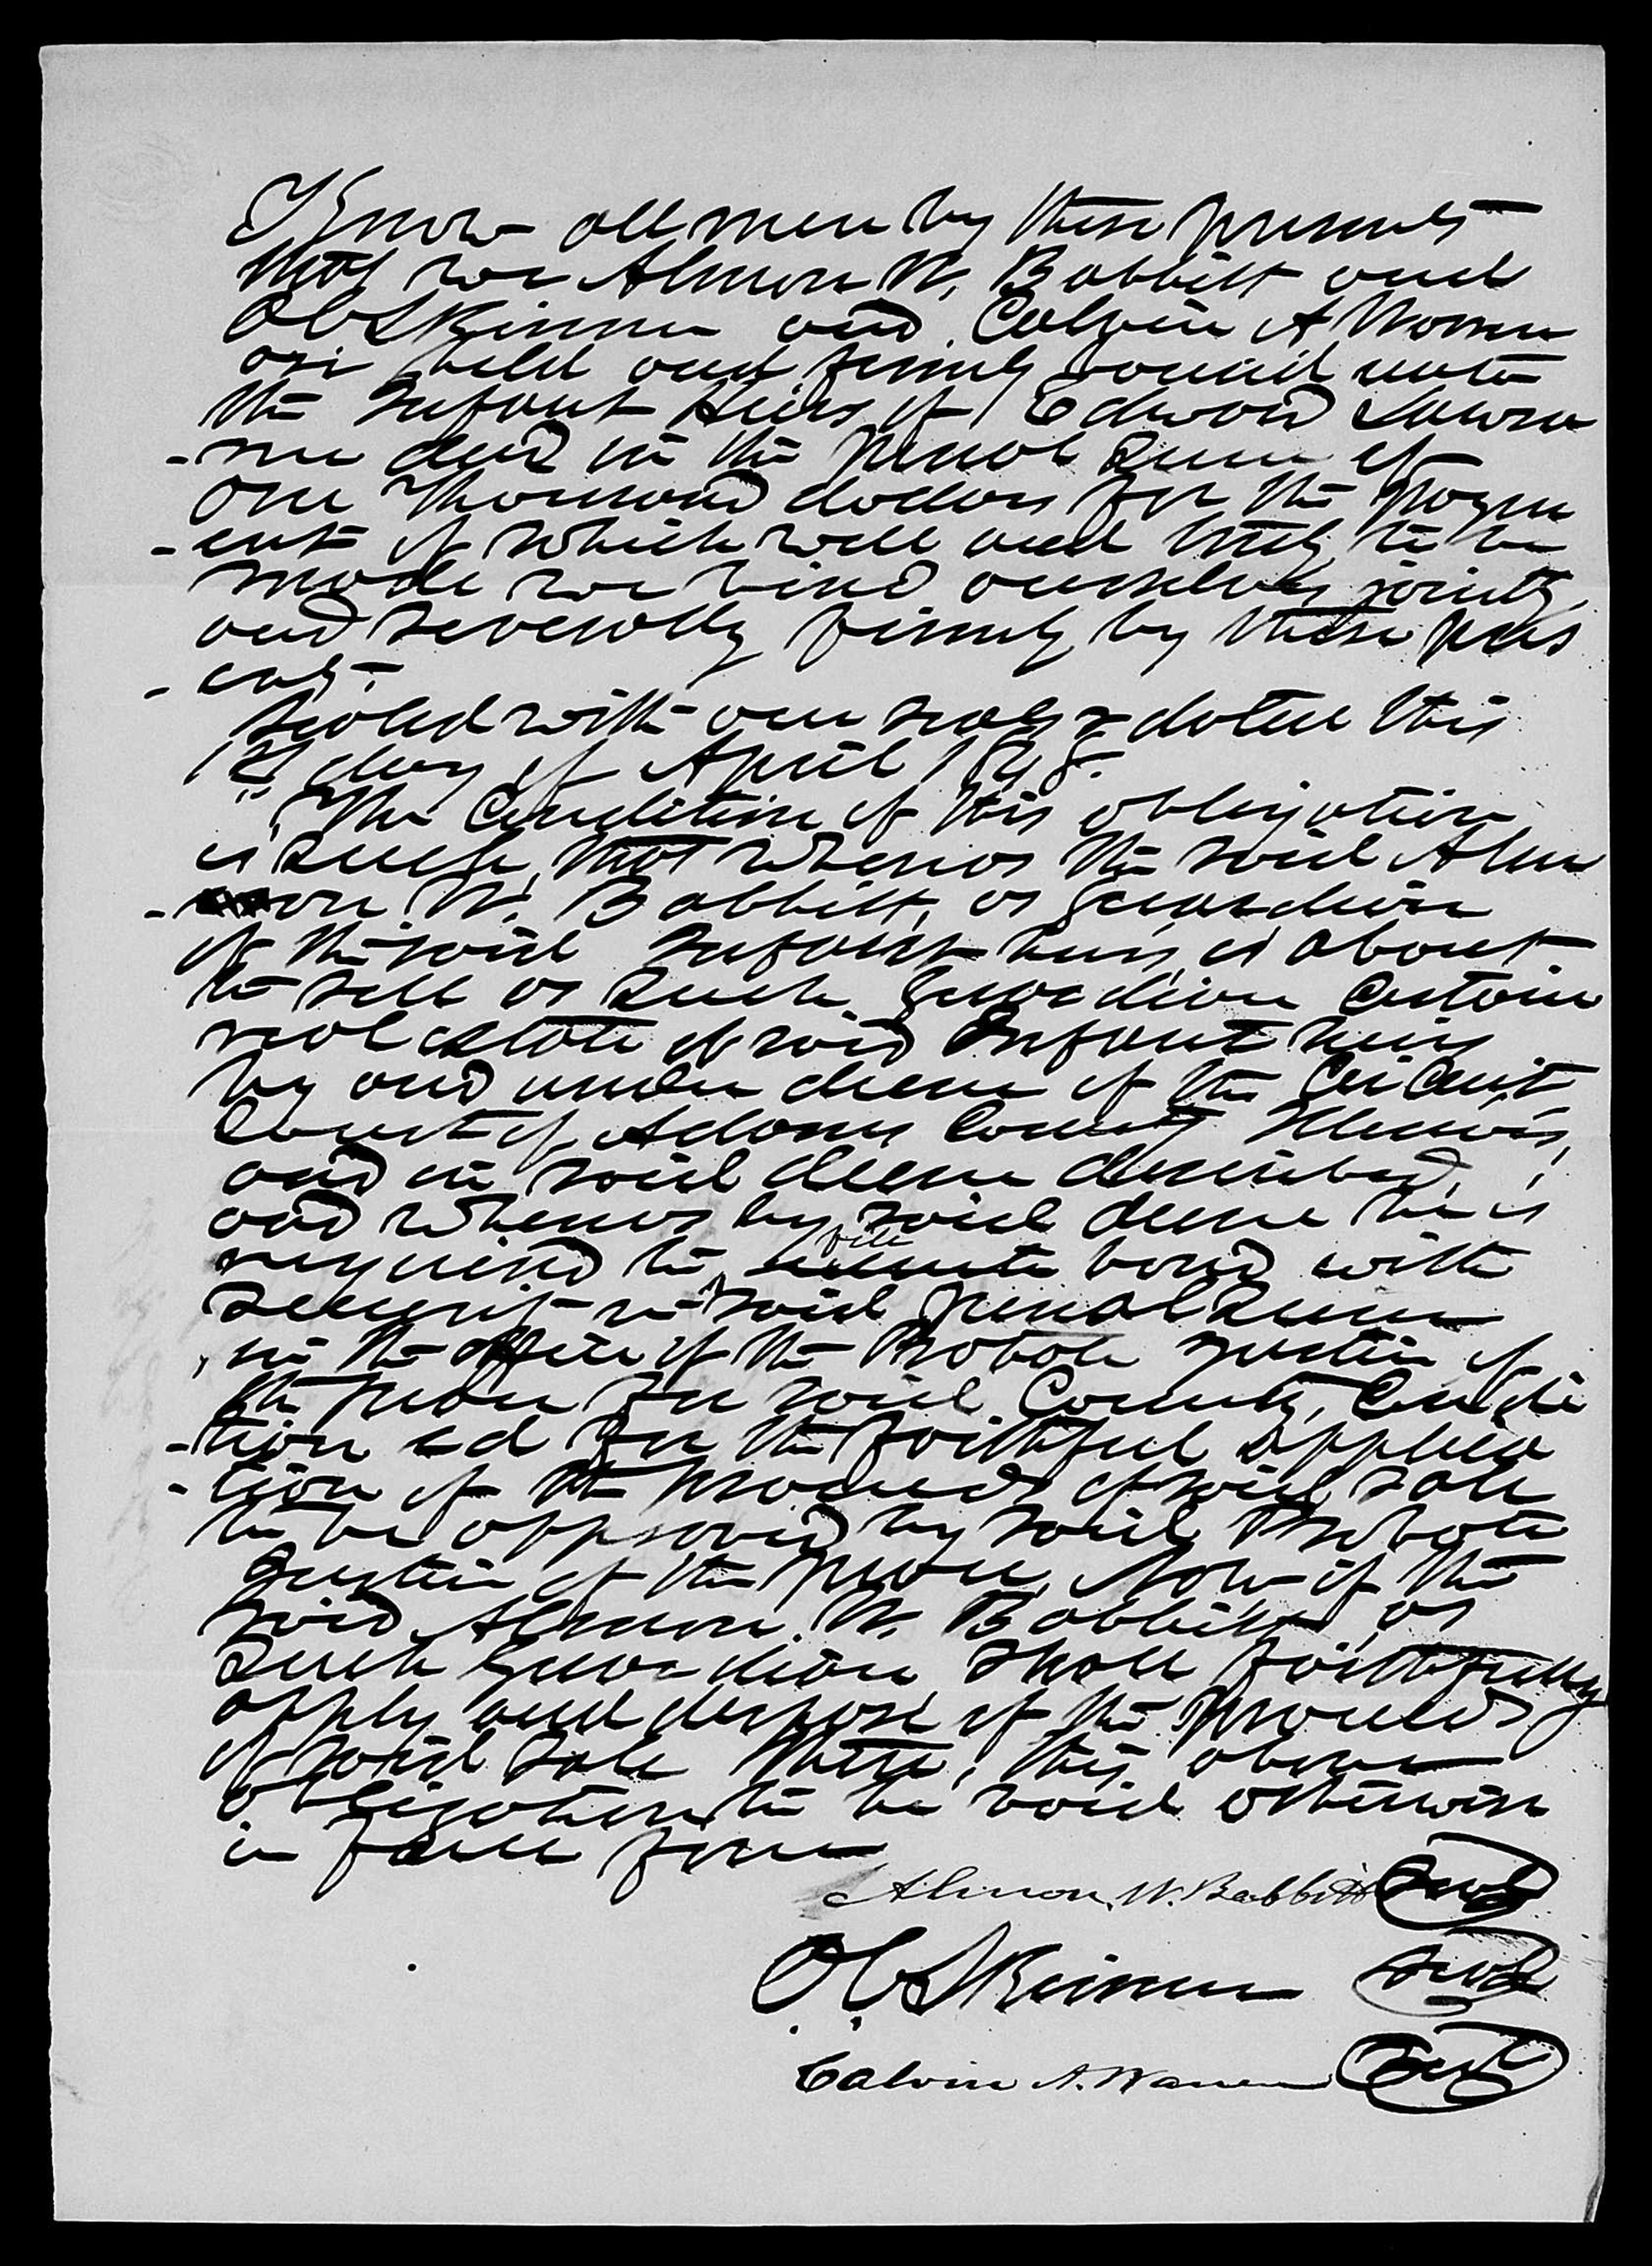 Know all men by these presents
that we Almon W. Babbitt and
O C Skinner and Calvin A Warren
are held and firmly bound unto
the Infant Heirs of Edward Lawra
-nce decd in the penal sum of
One Thousand dollars for the paym
-ent of which well and truly to be
made we bind ourselves jointly
and severally firmly by these pres
-ents.
Sealed with our seals & dated this
1st day of April 1848.
The Condition of this obligation
is such, that whereas the said Alm
-on W. Babbitt, as guardian
of the said Infant heirs, is about
to sell as such guardian certain
real estate of said Infant heirs
by and under decree of the Circuit
Court of Adams County Illinois,
and in said decree described,
and whereas by said decree he is
required to file execute bond with
security in said penal sum
in the office of the Probate Justice of
the peace for said County, Condi
-tion ed for the faithful applica
-tion of the proceeds of said sale
to be approved by said Probate
Justice of the peace, Now if the
said Almon W. Babbitt, as
such guardian shall faithfully
apply and dispose of the proceeds
of said sale then, this above
obligation to be void otherwise
in full force
Almon. W. Babbitt Seal
O. C. Skinner Seal
Calvin A. Warren Seal